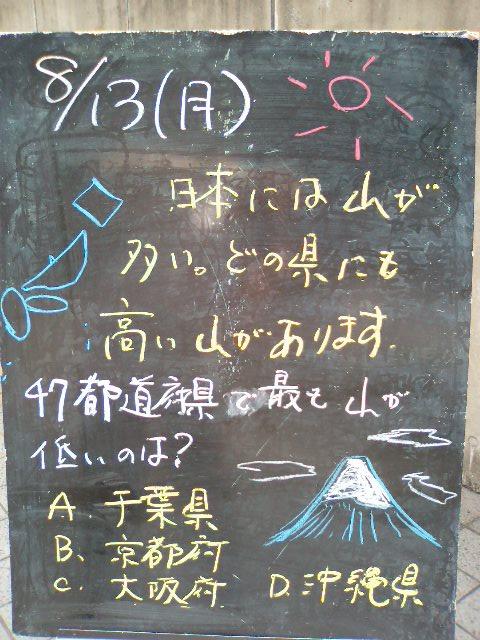 8/13(月)
日本には山が
多い。どの県にも
高い山があります.
47都道府県で最も山が
低いのは?
A. 千葉県
B、京都府
C. 大阪府 D.沖縄県